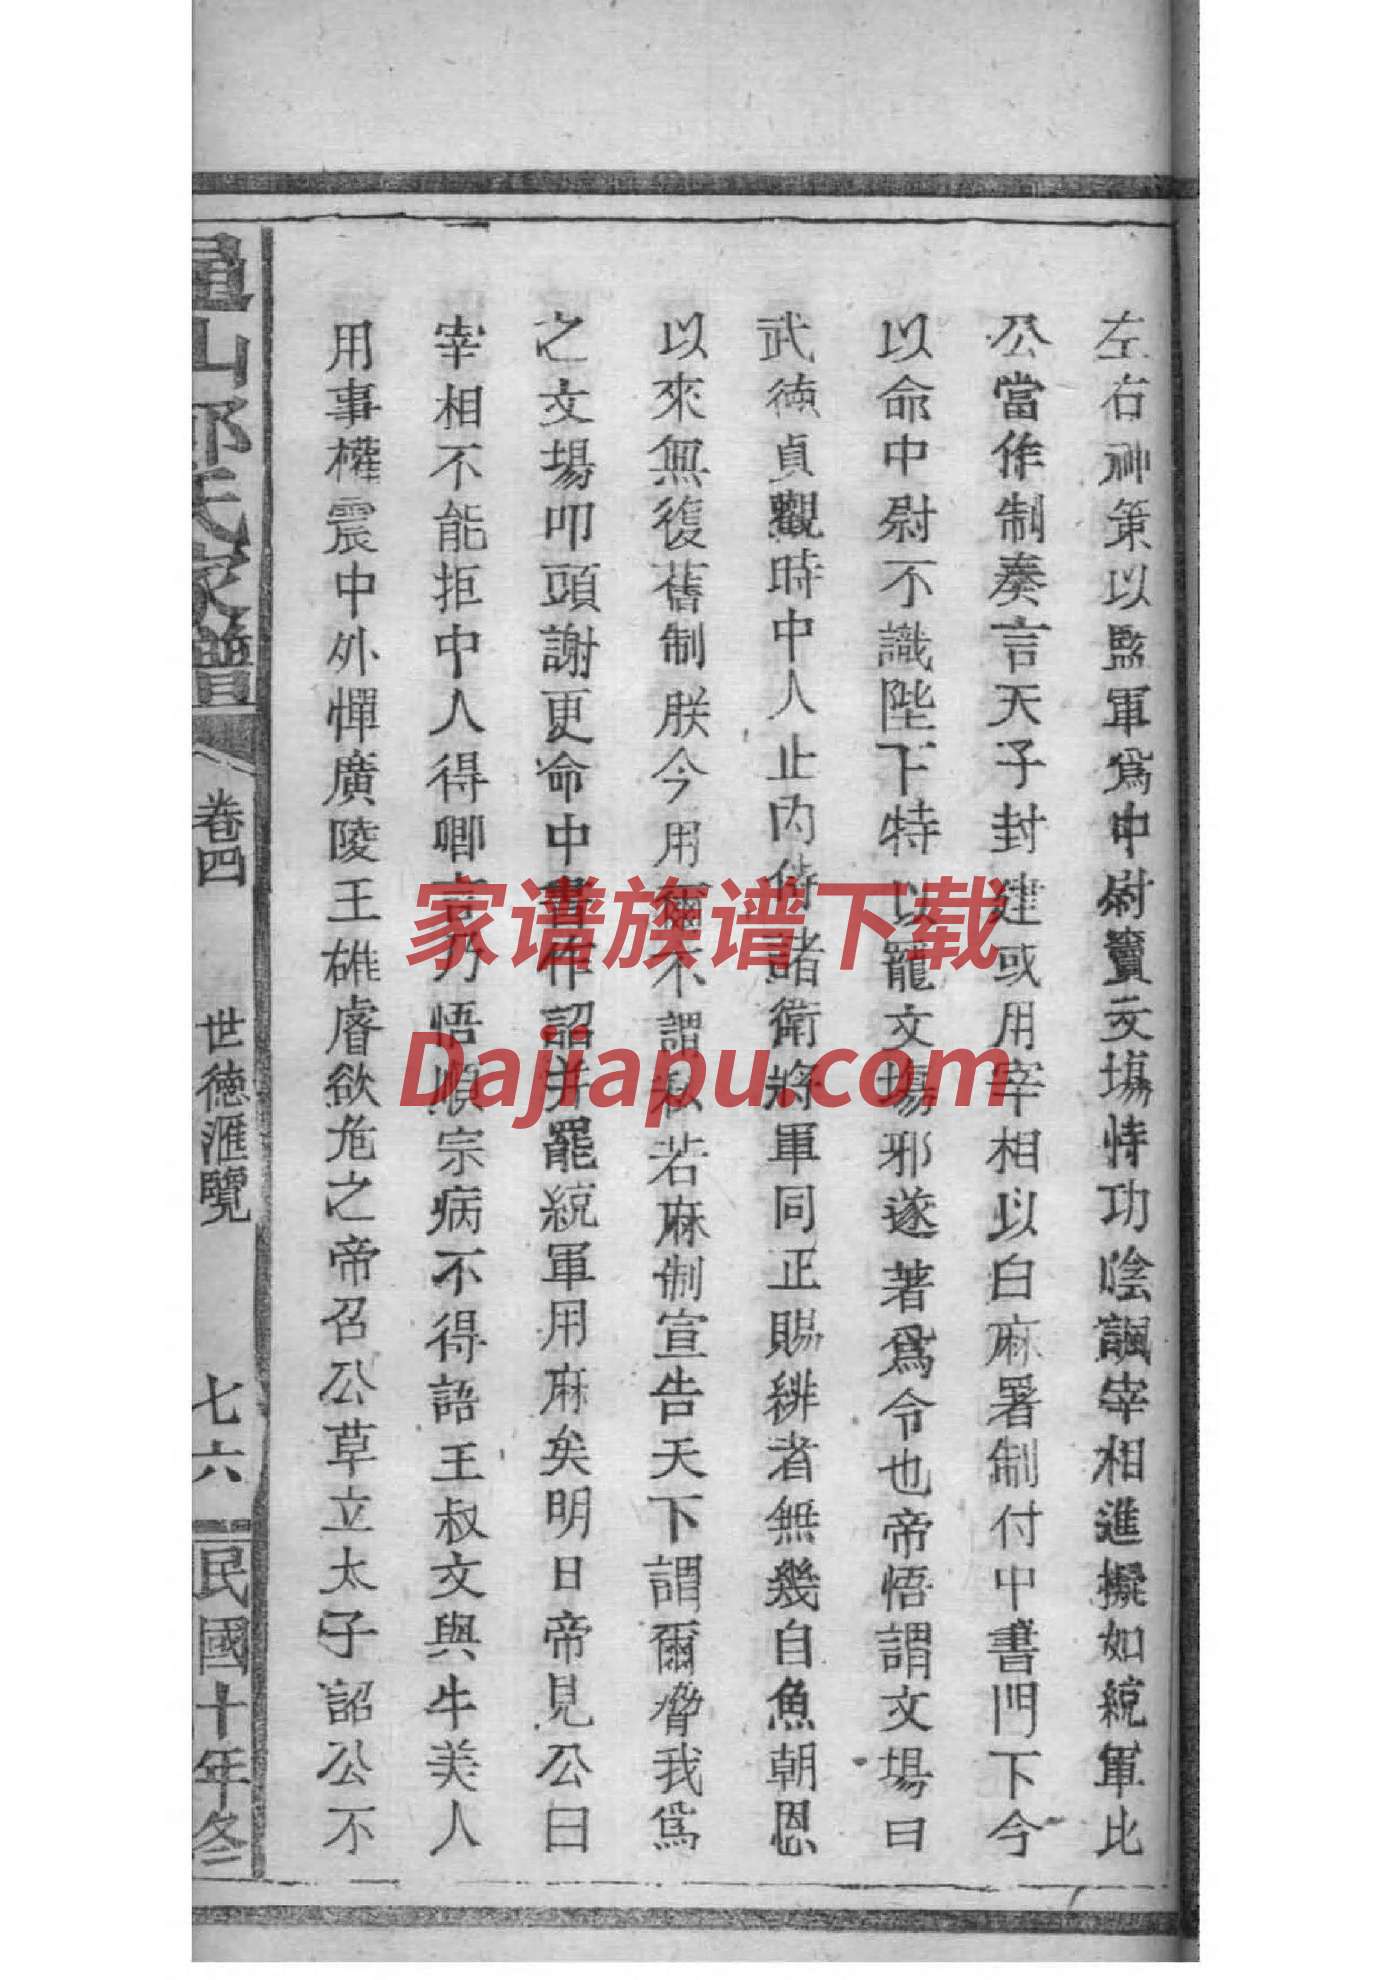 左右神策以監軍爲中尉竇文塲恃功陰諷宰相進擬如統軍比
公當作制奏言天子封建或用宰相以白麻署制付中書門下今
以命中尉不識陛下特以寵文塲邪遂著爲令也帝悟謂文塲曰
武德貞觀時中人止內侍諸衛將軍同正賜緋者無幾自魚朝恩
以來無復舊制朕今用爾不謂私若麻制宣告天下謂爾脅我爲
之文塲叩頭謝更命中書作詔并罷統軍用麻矣明日帝見公曰
宰相不能拒中人得卿言乃悟順宗病不得語王叔文與牛美人
用事權震中外憚廣陵王雄睿欲危之帝召公草立太子詔公不
鄭氏家譜
卷四
世德滙覽
七六
民國十年冬
家谱族谱下载
Dajiapu.com